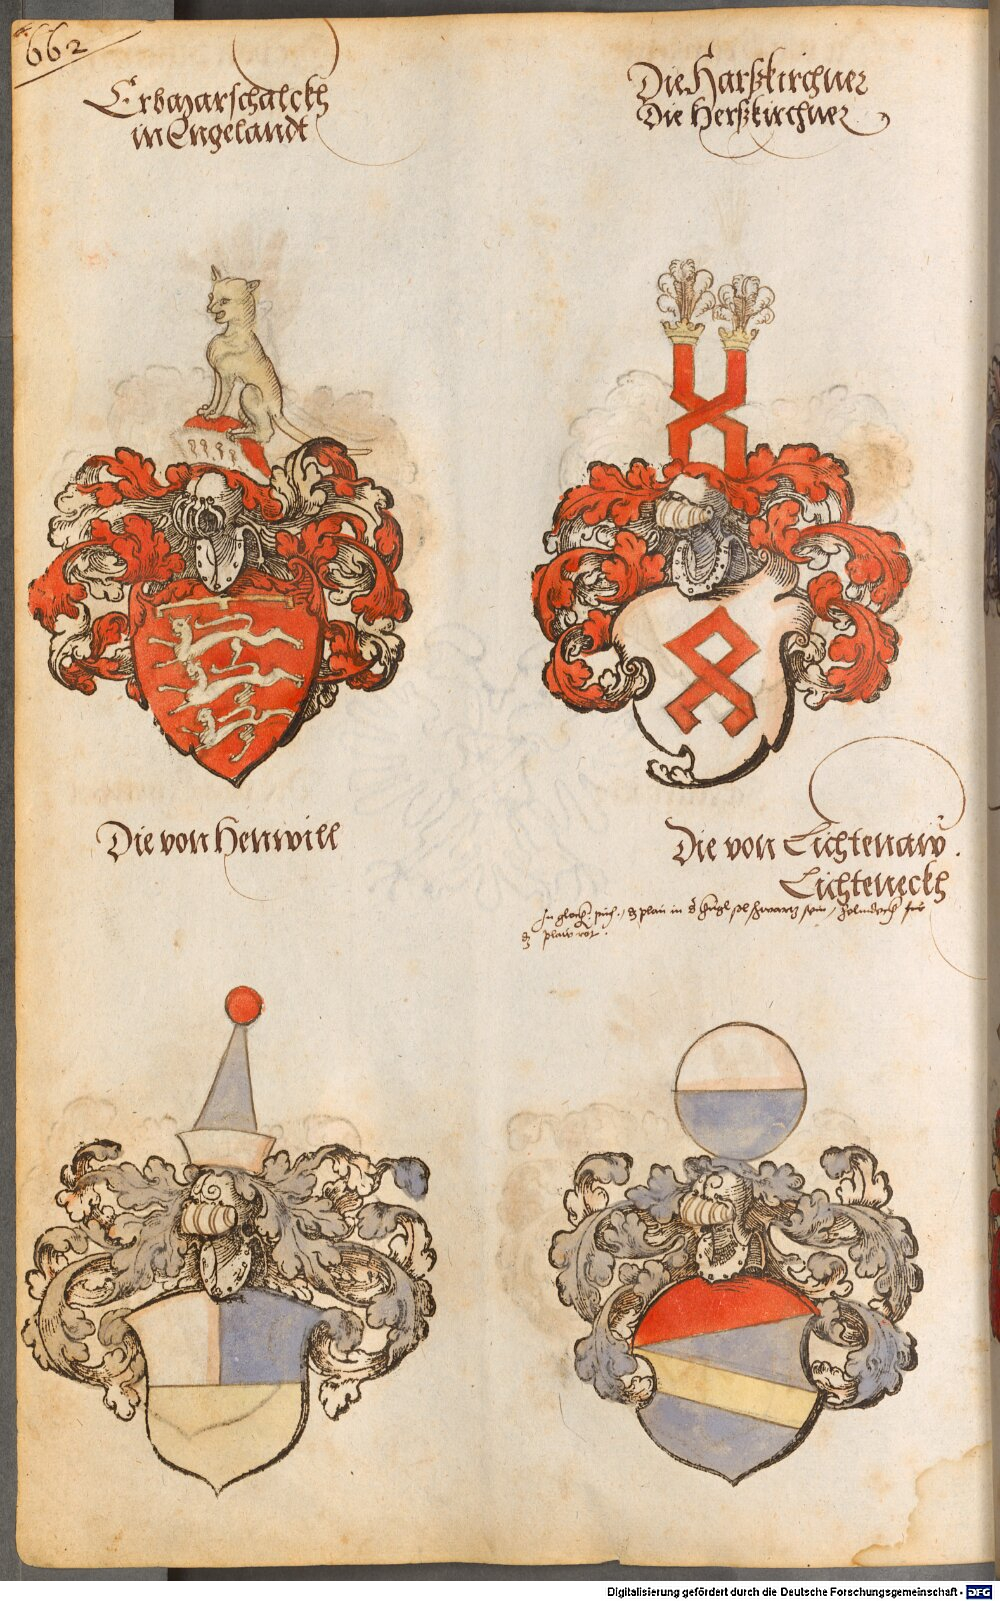 662
Erbmarschalckh
in Engelandt
Die Harßkirchner
Die Herßkirchner
Die von Henwill
Die von Lichtenaw.
Lichteneckh
in
plaw rot.
Digitalisierung gefördert durch die Deutsche Forschungsgemeinschaft - DFG